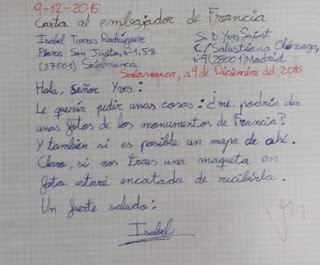 9-12-2015
Carta al embajador de Francia
Isabel Torres Rodríguez
Plaza San Justo, nº1, 5ºB
(37001) Salamanca
Sr. D. Yves Saint,
C/ Salustiano Olózaga,
nº9 (28001) Madrid
Salamanca, a 9 de Diciembre del 2015
Hola, Señor Yves:
Le quería pedir unas cosas: ¿me podría dar
unas fotos de los monumentos de Francia?
Y también si es posible un mapa de ahí.
Claro, si nos traes una maqueta en
foto estaré encatada de recibirla.
Un fuerte saludo:
Isabel